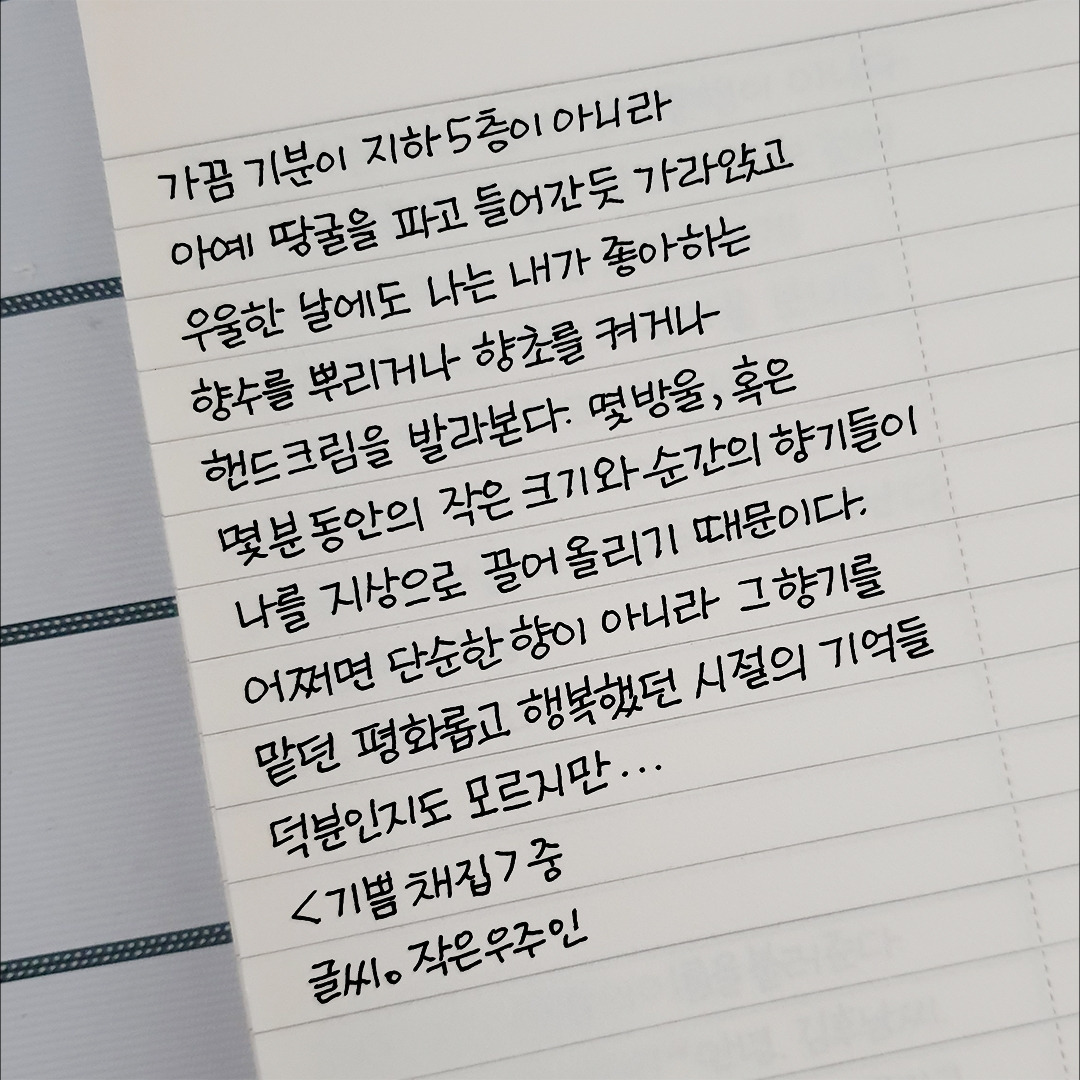 가끔 기분이 지하 5층이 아니라
아예 땅굴을 파고 들어간듯 가라앉고
우울한 날에도 나는 내가 좋아하는
향수를 뿌리거나 향초를 켜거나
핸드크림을 발라본다. 몇방울, 혹은
몇분동안의 작은 크기와 순간의 향기들이
나를 지상으로 끌어올리기 때문이다.
어쩌면 단순한 향이 아니라 그 향기를
맡던 평화롭고 행복했던 시절의 기억들
덕분인지도 모르지만...
<기쁨 채집> 중
글씨。작은우주인